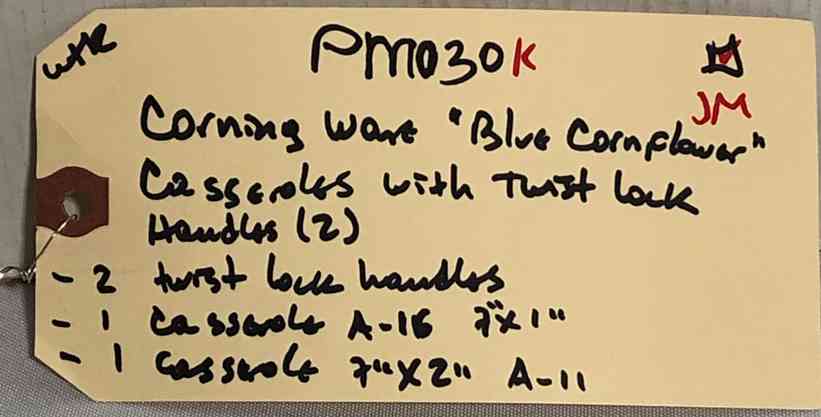 WHR
PM030K
JM
Corning Ware "Blue Cornflower"
Casseroles with Twist lock
Handles (2)
- 2 twist lock handles
- 1 Casserole A-16 7"X1"
- 1 Casserole 7"X2" A-11